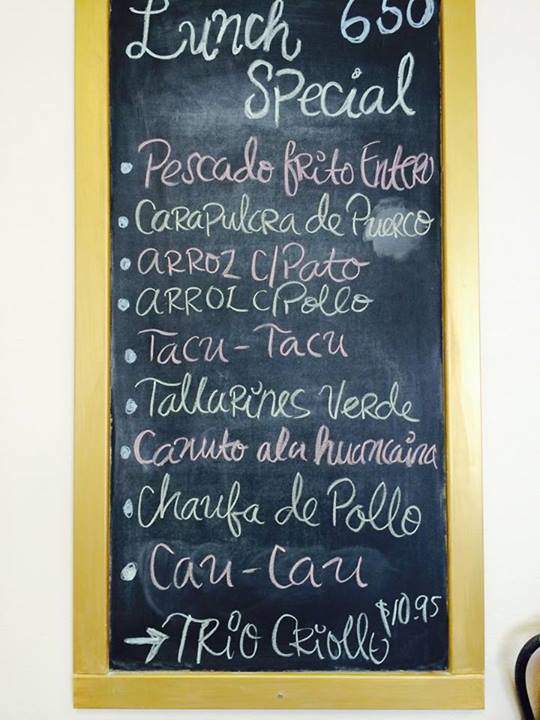 Lunch 650
Special
• Pescado frito Entero
• Carapulcra de Puerco
• ARROZ C/Pato
• ARROZ C/Pollo
• Tacu-Tacu
• Tallarines Verde
• Canuto ala huancaina
• Chaufa de Pollo
• Cau-Cau
→ TRIO CRiollo $10.95